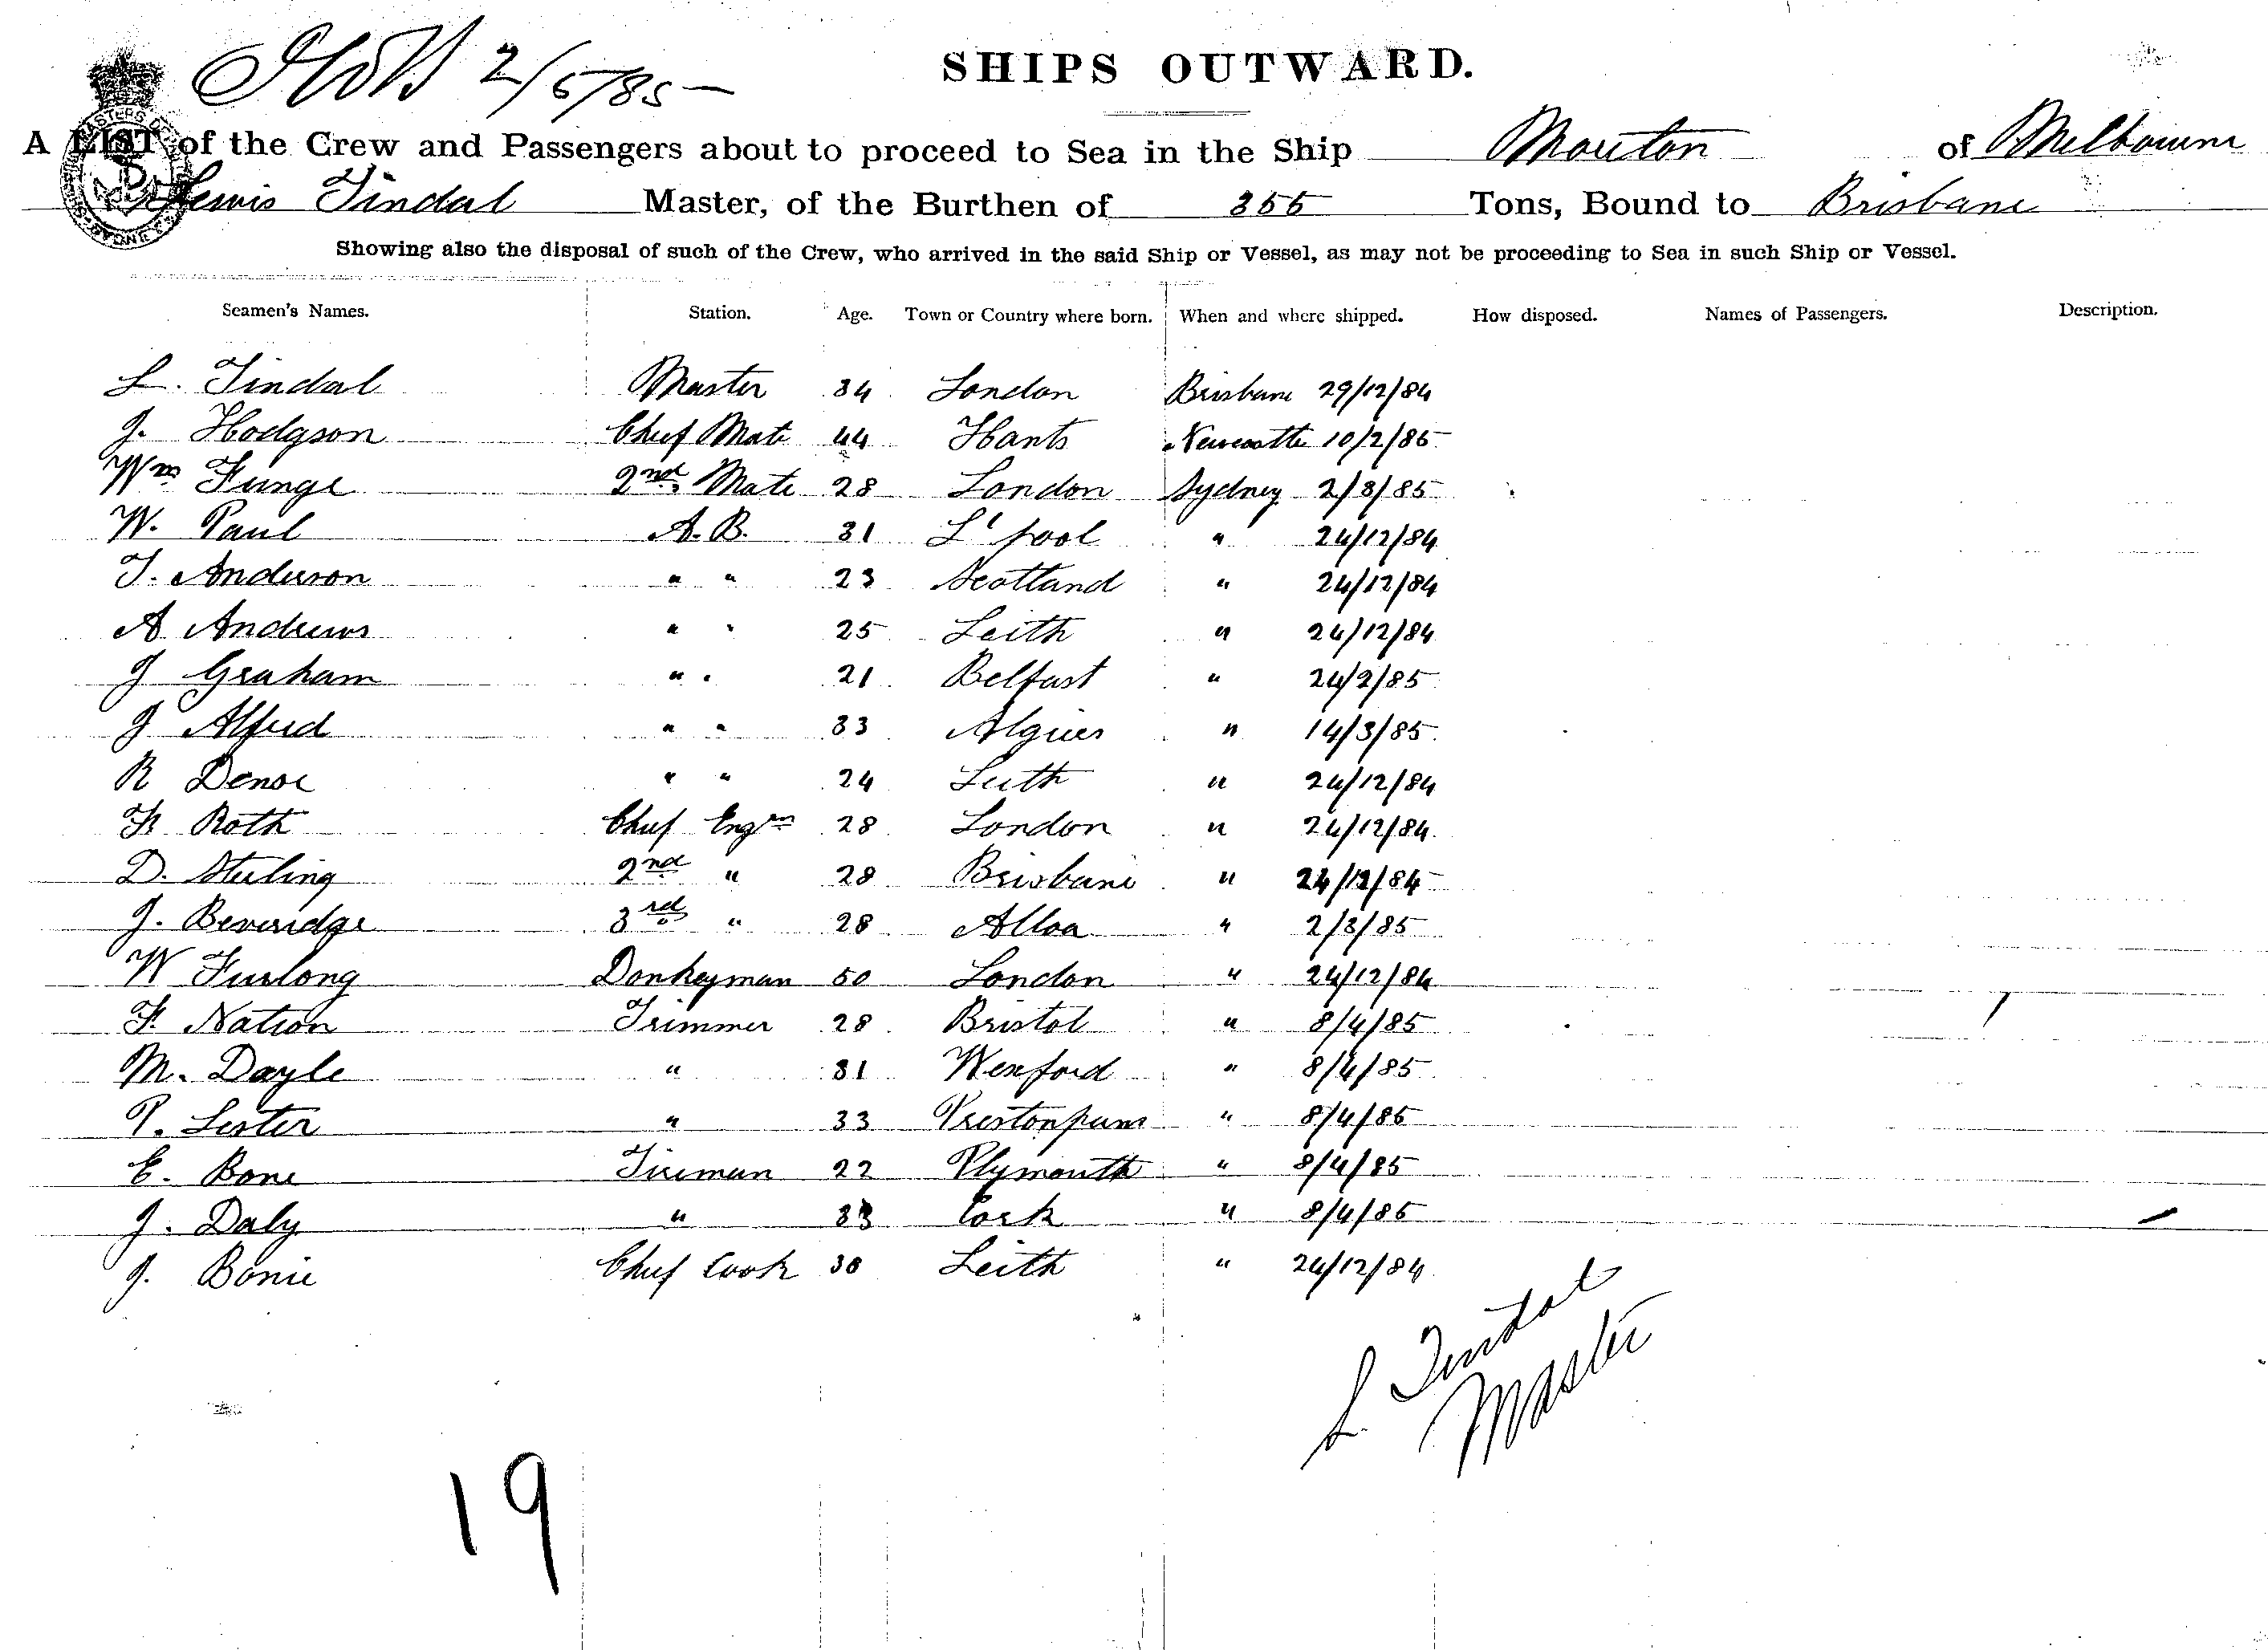 2/5/85
SHIPS OUTWARD.
A LIST of the Crew and Passengers about to proceed to Sea in the Ship Mouton of Melbourne
Lewis Tindal Master, of the Burthen of 355 Tons, Bound to Brisbane
Showing also the disposal of such of the Crew, who arrived in the said Ship or Vessel, as may not be proceeding to Sea in such Ship or Vessel.
Seamen's Names. Station. Age. Town or Country where born. When and where shipped. How disposed. Names of Passengers. Description.
L. Tindal Master 34 London Brisbane 29/12/84
J. Hodgson Chief Mate 44 Hants Newcastle 10/2/85
Wm Funge 2nd Mate 28 London Sydney 2/3/85
W. Paul A.B. 31 L'pool " 24/12/84
T. Anderson " " 23 Scotland " 24/12/84
A Andrews " " 25 Leith " 24/12/84
J Graham " " 21 Belfast " 24/2/85
J Alfred " " 33 Algiers " 14/3/85
R Denoe " " 24 Leith " 24/12/84
F. Roth Chief Engr 28 London " 24/12/84
D. Sterling 2nd " 28 Brisbane " 24/12/84
J. Beveridge 3rd " 28 Alloa " 2/3/85
W Furlong Donkeyman 50 London " 24/12/84
F. Nation Trimmer 28 Bristol " 8/4/85
M. Doyle " 31 Wexford " 8/4/85
P. Lester " 33 Prestonpans " 8/4/85
E. Bone Fireman 22 Plymouth " 8/4/85
J. Daly " 33 Cork " 8/4/85
J. Bonie Chief Cook 30 Leith " 24/12/84
L. Tindal
Master
19